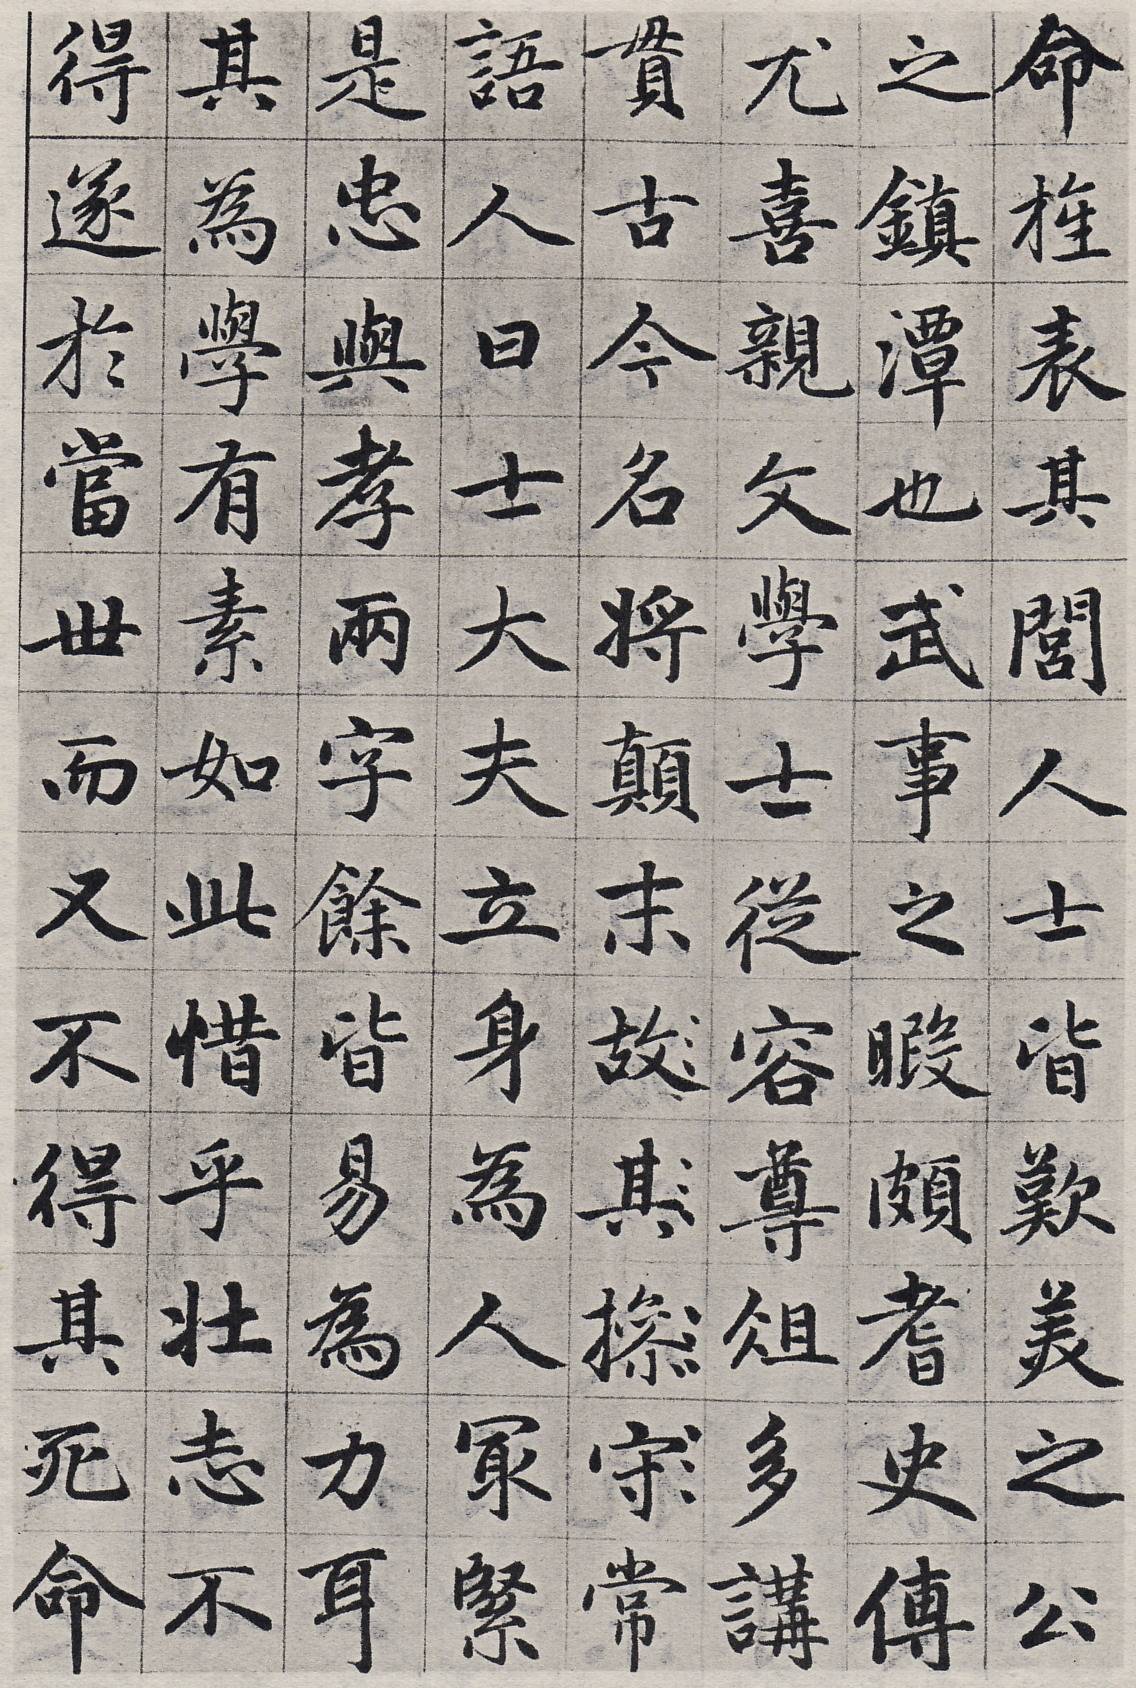 命旌表其閭人士皆歎美之公
之鎮潭也武事之暇頗耆史傳
尤喜親文學士從容尊俎多講
貫古今名將顛末故其操守常
語人曰士大夫立身為人冣緊
是忠與孝兩字餘皆易為力耳
其為學有素如此惜乎壯志不
得遂於當世而又不得其死命